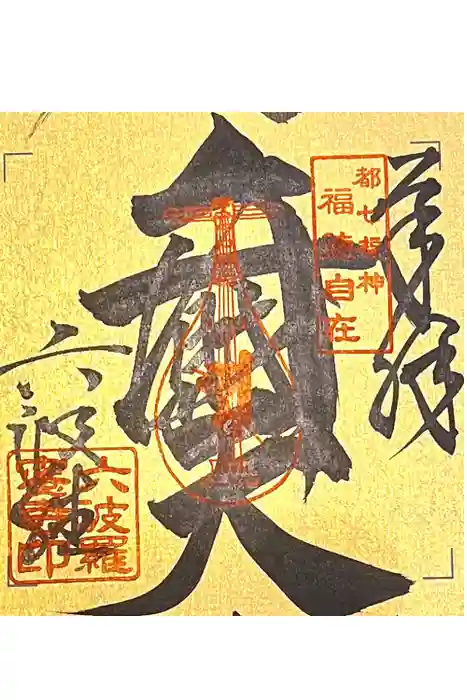 奉拝
都七福神
福徳自在
六波羅
六波羅
蜜寺印